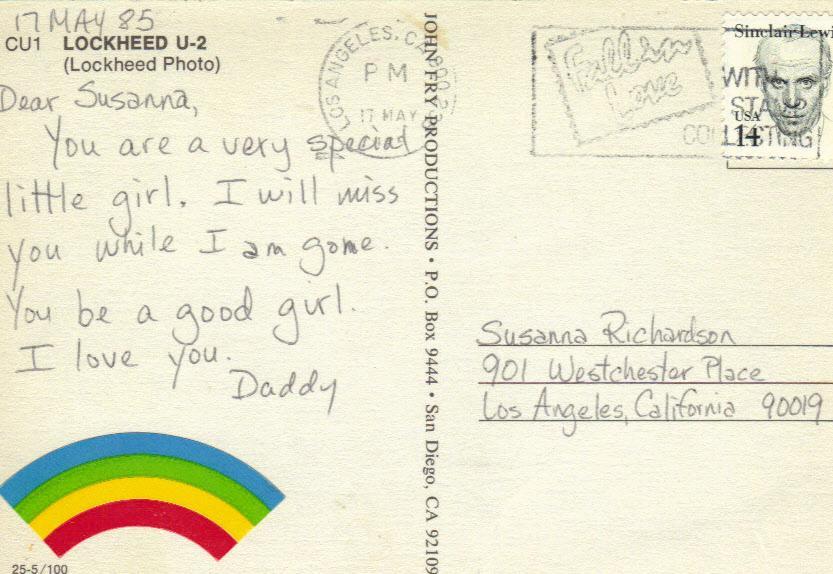 17 MAY 85
CU1 LOCKHEED U-2
(Lockheed Photo)
Dear Susanna,
You are a very special
little girl. I will miss
you while I am gone.
You be a good girl.
I love you.
Daddy
25-5/100
JOHN FRY PRODUCTIONS • P.O. Box 9444 • San Diego, CA 92109
LOS ANGELES, CA 900
PM
17 MAY
Fall in
Love
WITH
STAMP
COLLECTING
Sinclair Lewi
USA
14
Susanna Richardson
901 Westchester Place
Los Angeles, California 90019